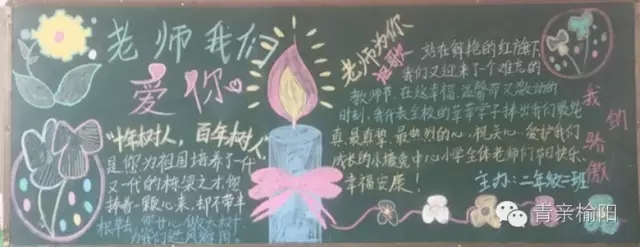 老师我们
爱你
"十年树人，百年树人"
是您为祖国培养了一代
又一代的栋梁之才,您
捧着一颗心来,却不带半
根草去,您甘心做大树
为我们遮风避雨。
老师为你
讴歌
站在鲜艳的红旗下
我们又迎来了一个难忘的
教师节,在这幸福,温馨而又激动的
时刻,我代表全校的莘莘学子捧出我们最纯
真,最真挚、最热烈的心,祝关心,爱护我们
成长的小墙党中心小学全体老师们节日快乐、
幸福安康！
主办：二年级二班
我
们
骄
傲
青亲榆阳